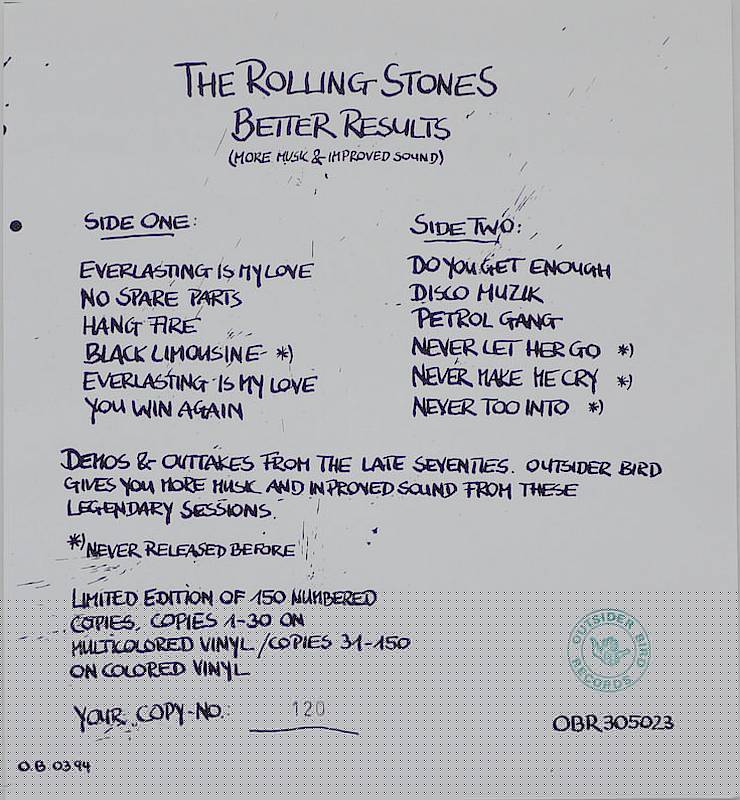 THE ROLLING STONES
BETTER RESULTS
(MORE MUSIK & IMPROVED SOUND)
SIDE ONE:
EVERLASTING IS MY LOVE
NO SPARE PARTS
HANG FIRE
BLACK LIMOUSINE *)
EVERLASTING IS MY LOVE
YOU WIN AGAIN
SIDE TWO:
DO YOU GET ENOUGH
DISCO MUZIK
PETROL GANG
NEVER LET HER GO *)
NEVER MAKE ME CRY *)
NEVER TOO INTO *)
DEMOS & OUTTAKES FROM THE LATE SEVENTIES. OUTSIDER BIRD
GIVES YOU MORE MUSIC AND INPROVED SOUND FROM THESE
LEGENDARY SESSIONS.
*) NEVER RELEASED BEFORE
LIMITED EDITION OF 150 NUMBERED
COPIES. COPIES 1-30 ON
MULTICOLORED VINYL / COPIES 31-150
ON COLORED VINYL
YOUR COPY-NO.: 120
OUTSIDER BIRD RECORDS
OBR 305023
O.B. 03.94